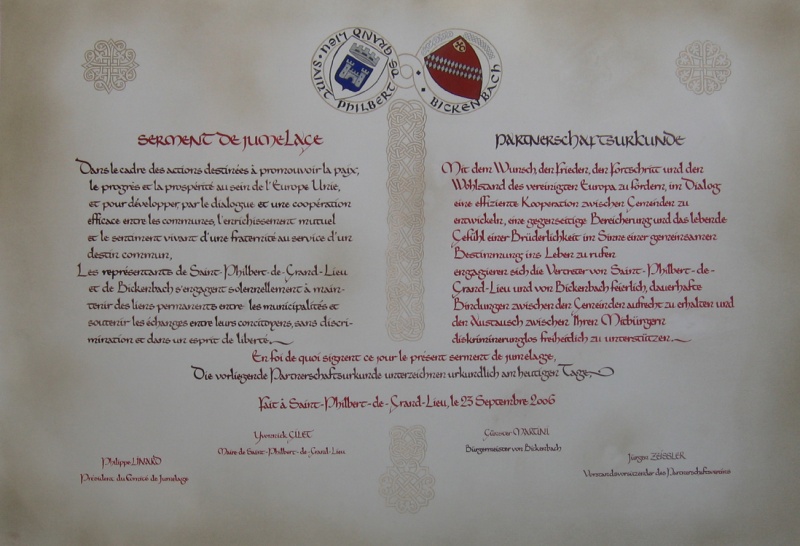 SAINT PHILBERT DE GRAND LIEU
BICKENBACH
SERMENT DE JUMELAGE
Dans le cadre des actions destinées à promouvoir la paix,
le progrès et la prospérité au sein de l'Europe Unie,
et pour développer, par le dialogue et une coopération
efficace entre les communes, l'enrichissement mutuel
et le sentiment vivant d'une fraternité au service d'un
destin commun,
Les représentants de Saint-Philbert-de-Grand-Lieu
et de Bickenbach s'engagent solennellement à main-
tenir des liens permanents entre les municipalités et
soutenir les échanges entre leurs concitoyens, sans discri-
mination et dans un esprit de liberté.
PARTNERSCHAFTSURKUNDE
Mit dem Wunsch, den Frieden, den Fortschritt und den
Wohlstand des vereinigten Europa zu fördern, im Dialog
eine effiziente Kooperation zwischen Gemeinden zu
entwickeln, eine gegenseitige Bereicherung und das lebende
Gefühl einer Brüderlichkeit im Sinne einer gemeinsamen
Bestimmung ins Leben zu rufen
engagieren sich die Vertreter von Saint-Philbert-de-
Grand-Lieu und von Bickenbach feierlich, dauerhafte
Bindungen zwischen den Gemeinden aufrecht zu erhalten und
den Austausch zwischen Ihren Mitbürgern
diskriminerunglos freiheitlich zu unterstützen.
En foi de quoi signent ce jour le présent serment de jumelage,
Die vorliegende Partnerschaftsurkunde unterzeichnen urkundlich am heutigen Tage,
Fait à Saint-Philbert-de-Grand-Lieu, le 23 Septembre 2006
Philippe LINARD
Président du Comité de Jumelage
Yvonnick GILET
Maire de Saint-Philbert-de-Grand-Lieu
Günter MARTINI
Bürgermeister von Bickenbach
Jürgen ZEISSLER
Vorstandsvorsitzender des Partnerschaftsvereins